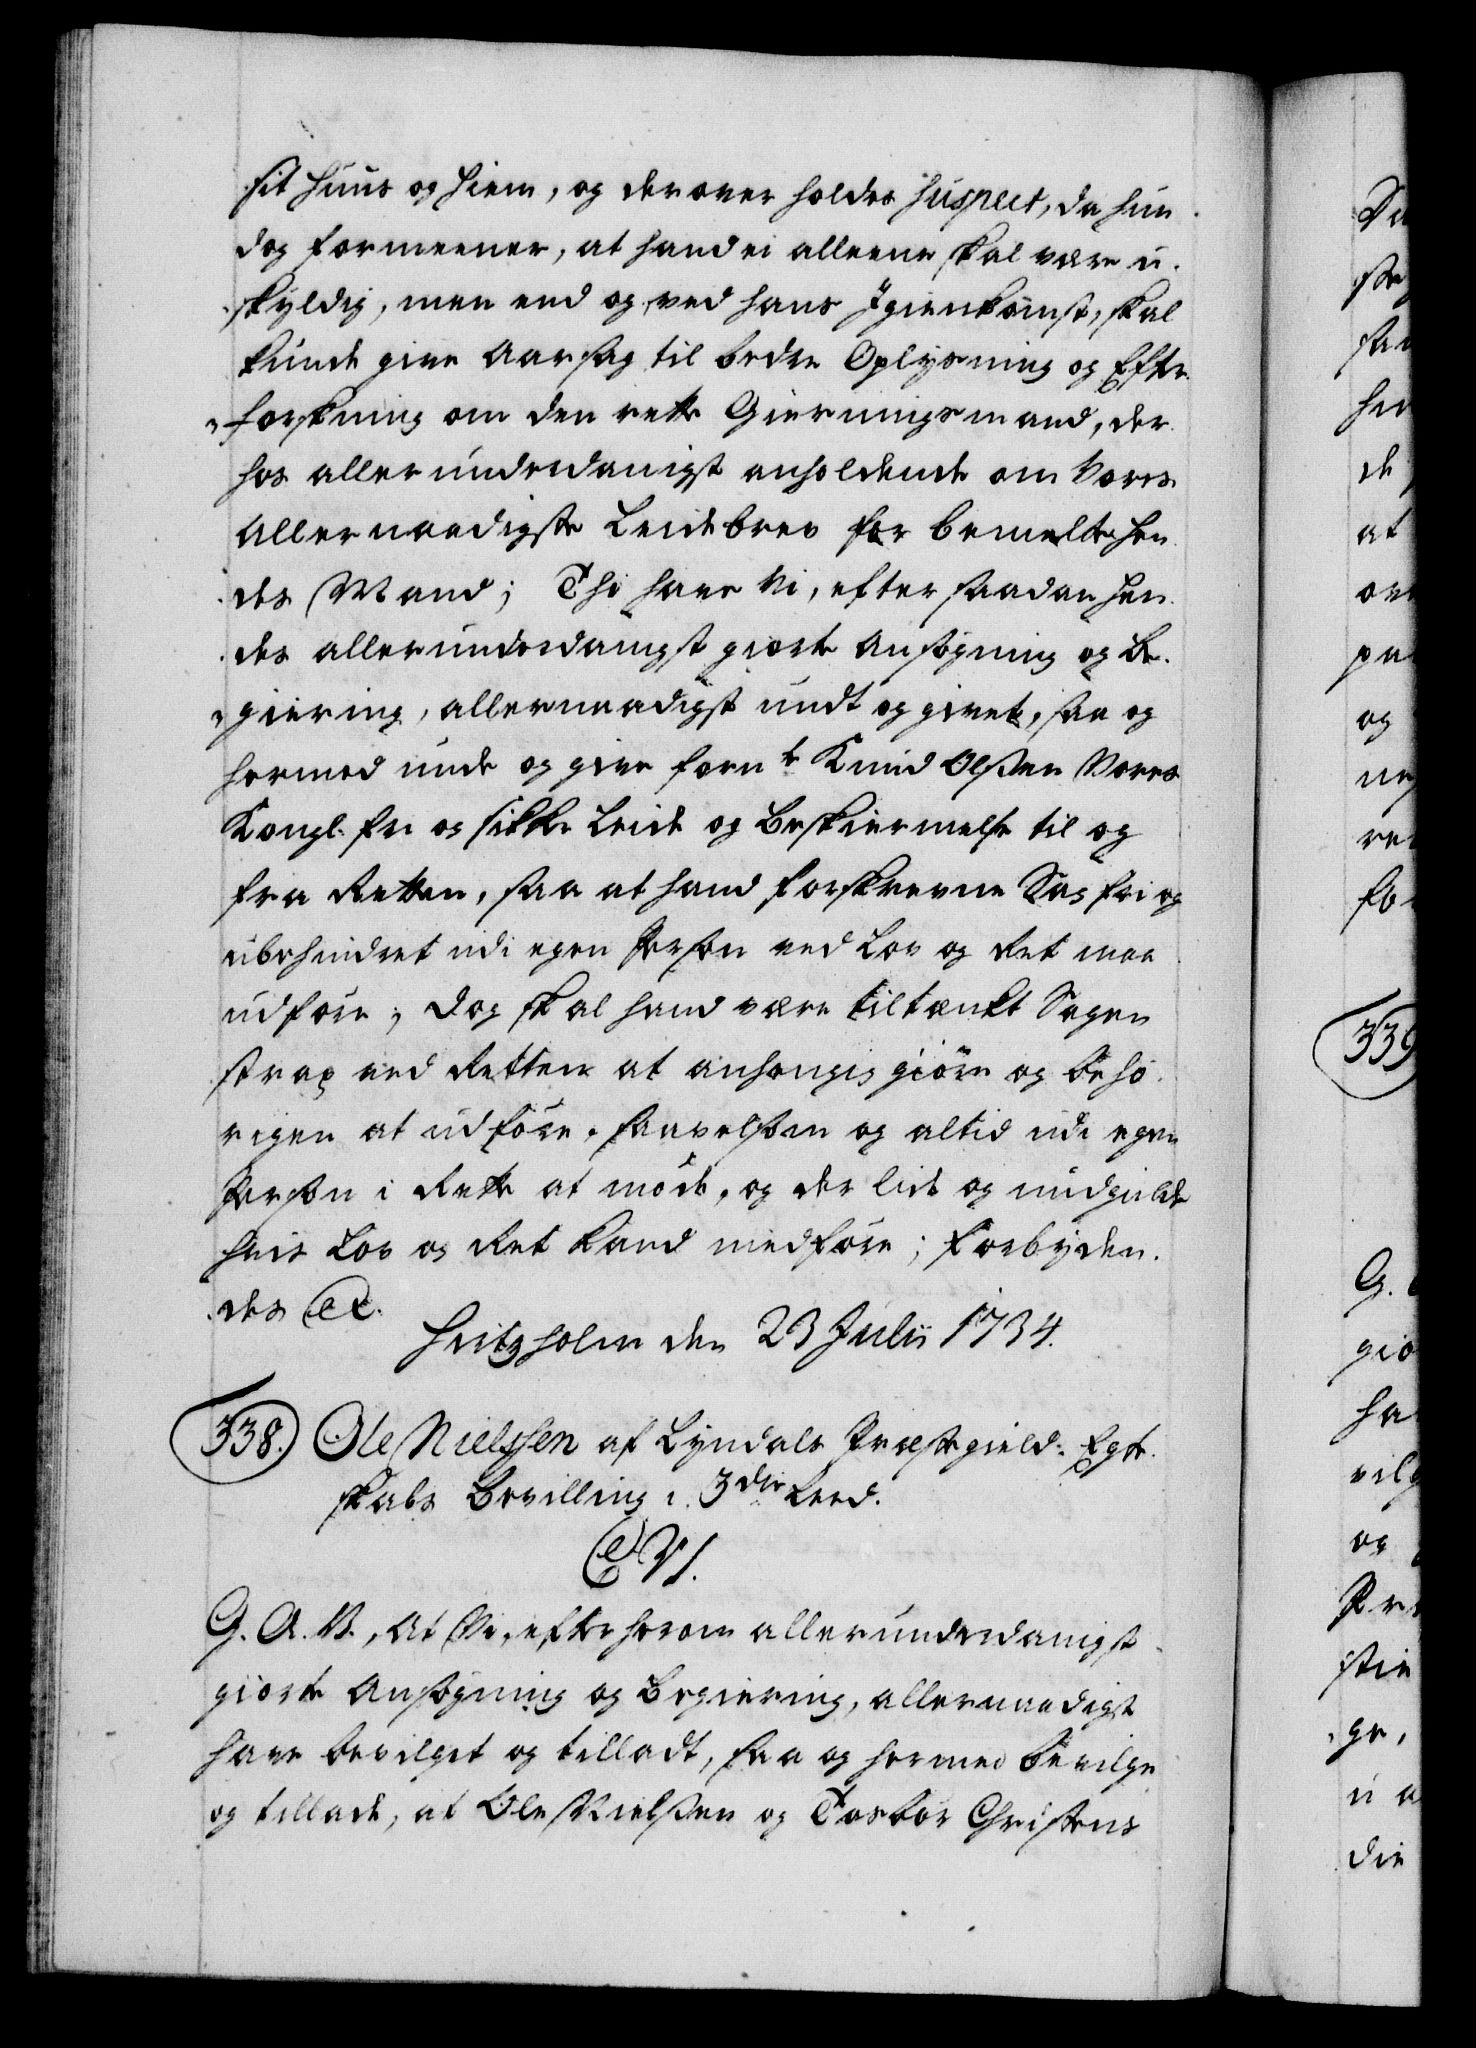 sit Huus og Hiem, og derover holdes suspect, da hun
dog formeener, at hand ei alleene skal være u-
skyldig, men end og ved hans Igienkomst, skal
kunde give Aarsag til bedre Oplysning og Efter-
forskning om den rette Gierningsmand, der-
hos allerunderdanigst anholdende om Vores
Allernaadigste Leidebrev for bemelte Hen-
des Mand; Thi have Vi, efter saadan Hen-
des allerunderdanigst giorte Ansøgning og Be-
giering, allernaadigst undt og givet, saa og
hermed unde og give fornte Knud Olssen Vores
Kongl. fri og sikker Leide og Beskiermelse til og
fra Retten, saa at hand forskrevne Sag fri og
ubehindret udi egen Person ved Lov og Ret maa
udføre; Dog skal hand være tiltænkt Sagen
strax ved Retten at anhengig giøre og behø-
rigen at udføre, saavelsom og altid udi egen
Person i Rette at møde, og der lide og undgielde
hvis Lov og Ret kand medføre; Forbyden-
des etc.
Fritzholm den 23 Julii 1734.
338. Ole Nielssen af Lyndals Præstegield: Egte-
skabs Bevilling i 3die Leed.
C VI.
G. A. V., At Vi, efter herom allerunderdanigst
giorte Ansøgning og Begiering, allernaadigst
have bevilget og tilladt, saa og hermed bevilge
og tillade, at Ole Nielssen og Torbor Christens
339